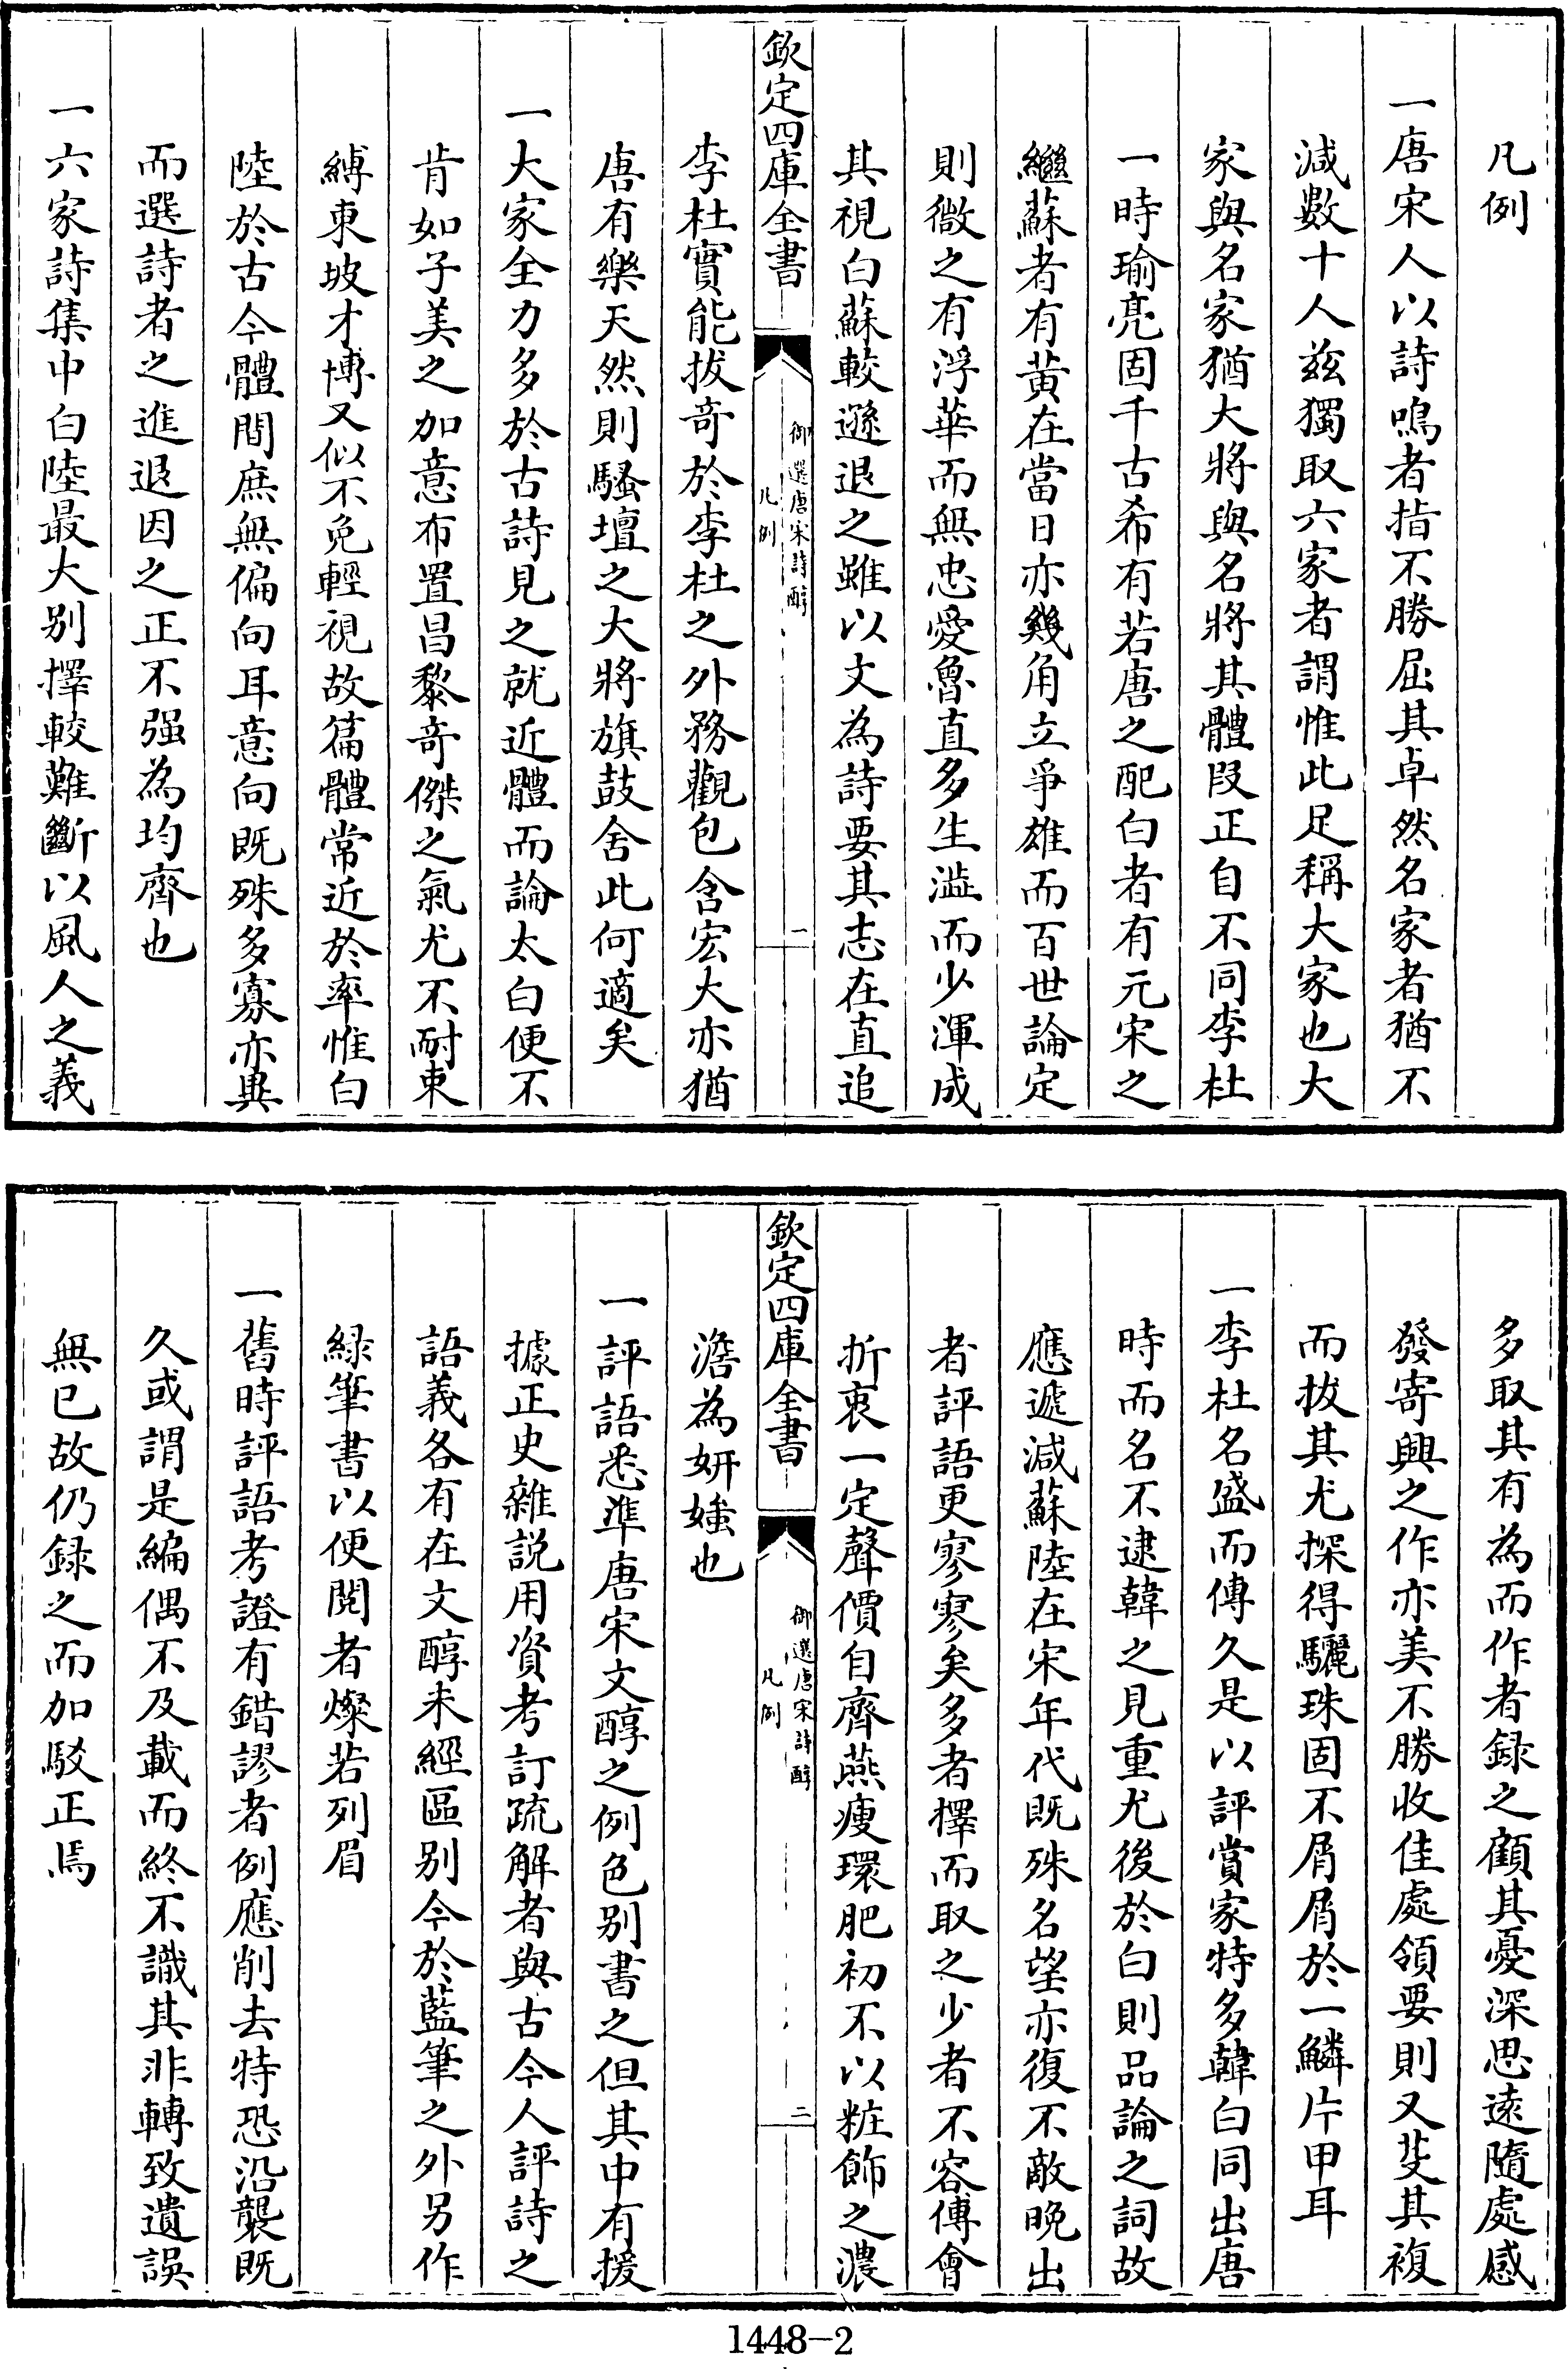 凡例
一唐宋人以詩鳴者指不勝屈其卓然名家者猶不
減數十人兹獨取六家者謂惟此足稱大家也大
家與名家猶大將與名將其體段正自不同李杜
一時瑜亮固千古希有若唐之配白者有元宋之
繼蘇者有黄在當日亦幾角立爭雄而百世論定
則微之有浮華而無忠愛魯直多生澁而少渾成
其視白蘇較遜退之雖以文為詩要其志在直追
欽定四庫全書
御選唐宋詩醇
凡例
一
李杜實能拔奇於李杜之外務觀包含宏大亦猶
唐有樂天然則騷壇之大將旗鼓舍此何適矣
一大家全力多於古詩見之就近體而論太白便不
肯如子美之加意布置昌黎奇傑之氣尤不耐束
縛東坡才博又似不免輕視故篇體常近於率惟白
陸於古今體間庶無偏向耳意向既殊多寡亦異
而選詩者之進退因之正不强為均齊也
一六家詩集中白陸最大别擇較難斷以風人之義
多取其有為而作者録之顧其憂深思遠隨處感
發寄興之作亦美不勝收佳處領要則又芟其複
而拔其尤探得驪珠固不屑屑於一鱗片甲耳
一李杜名盛而傳久是以評賞家特多韓白同出唐
時而名不逮韓之見重尤後於白則品論之詞故
應遞減蘇陸在宋年代既殊名望亦復不敵晚出
者評語更寥寥矣多者擇而取之少者不容傅會
折衷一定聲價自齊燕瘦環肥初不以粧飾之濃
欽定四庫全書
御選唐宋詩醇
凡例
二
澹為妍媸也
一評語悉準唐宋文醇之例色别書之但其中有援
據正史雜説用資考訂疏解者與古今人評詩之
語義各有在文醇未經區别今於藍筆之外另作
緑筆書以便閲者燦若列眉
一舊時評語考證有錯謬者例應削去特恐沿襲既
久或謂是編偶不及載而終不識其非轉致遺誤
無已故仍録之而加駁正焉
1448-2